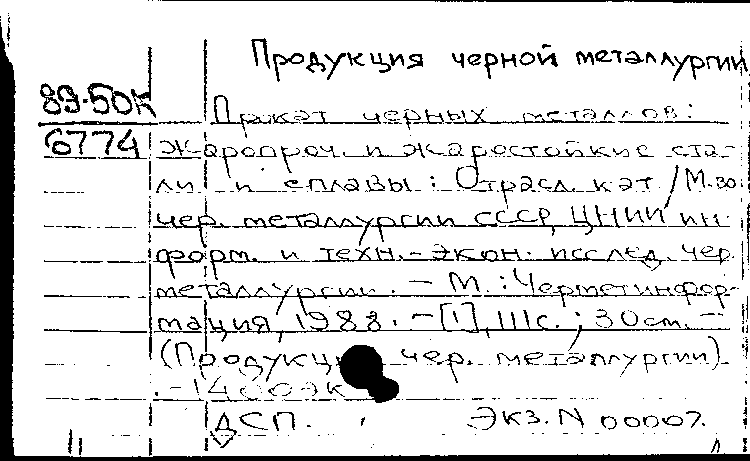 Продукция черной металлургии
89-50К
6774
Прокат черных металлов:
жаропроч. и жаростойкие ста-
ли и сплавы: Отрасл. кат / М-во
чер. металлургии СССР, ЦНИИ ин-
форм. и техн.-экон. исслед. чер.
металлургии. - М.: Черметинфор-
мация, 1988. - [1], 111 с.; 30 см. -
(Продукц чер. металлургии)
. - 1400 эк
ДСП. Экз. N 00007.